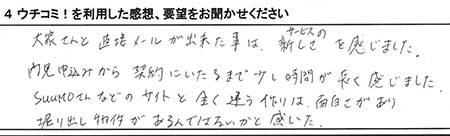 4 ウチコミ！を利用した感想、要望をお聞かせください
大家さんと直接メールが出来た事は、サービスの新しさを感じました。
内見申込みから契約にいたるまで少し時間が長く感じました。
SUUMOさんなどのサイトと全く違う作りは、面白さがあり
堀り出し物件があるんではないかと感いた。